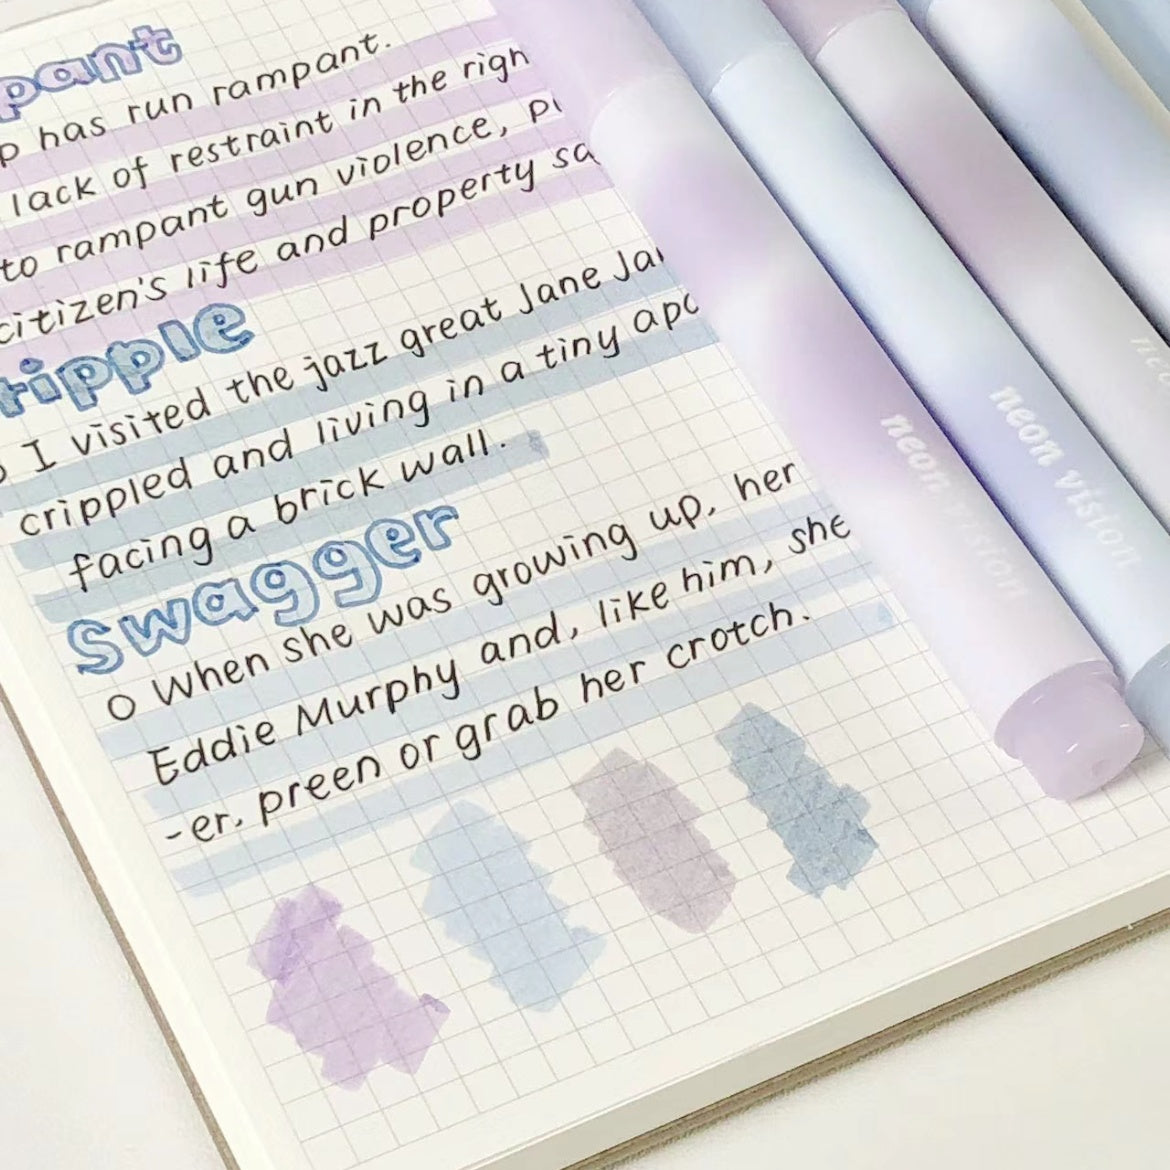 pant
has run rampant.
lack of restraint in the righ
to rampant gun violence, pu
citizen's life and property sa
ripple
I visited the jazz great Jane Jar
crippled and living in a tiny apa
facing a brick wall.
swagger
O When she was growing up, her
Eddie Murphy and, like him, she
-er, preen or grab her crotch.
neon vision
neon vision
neo